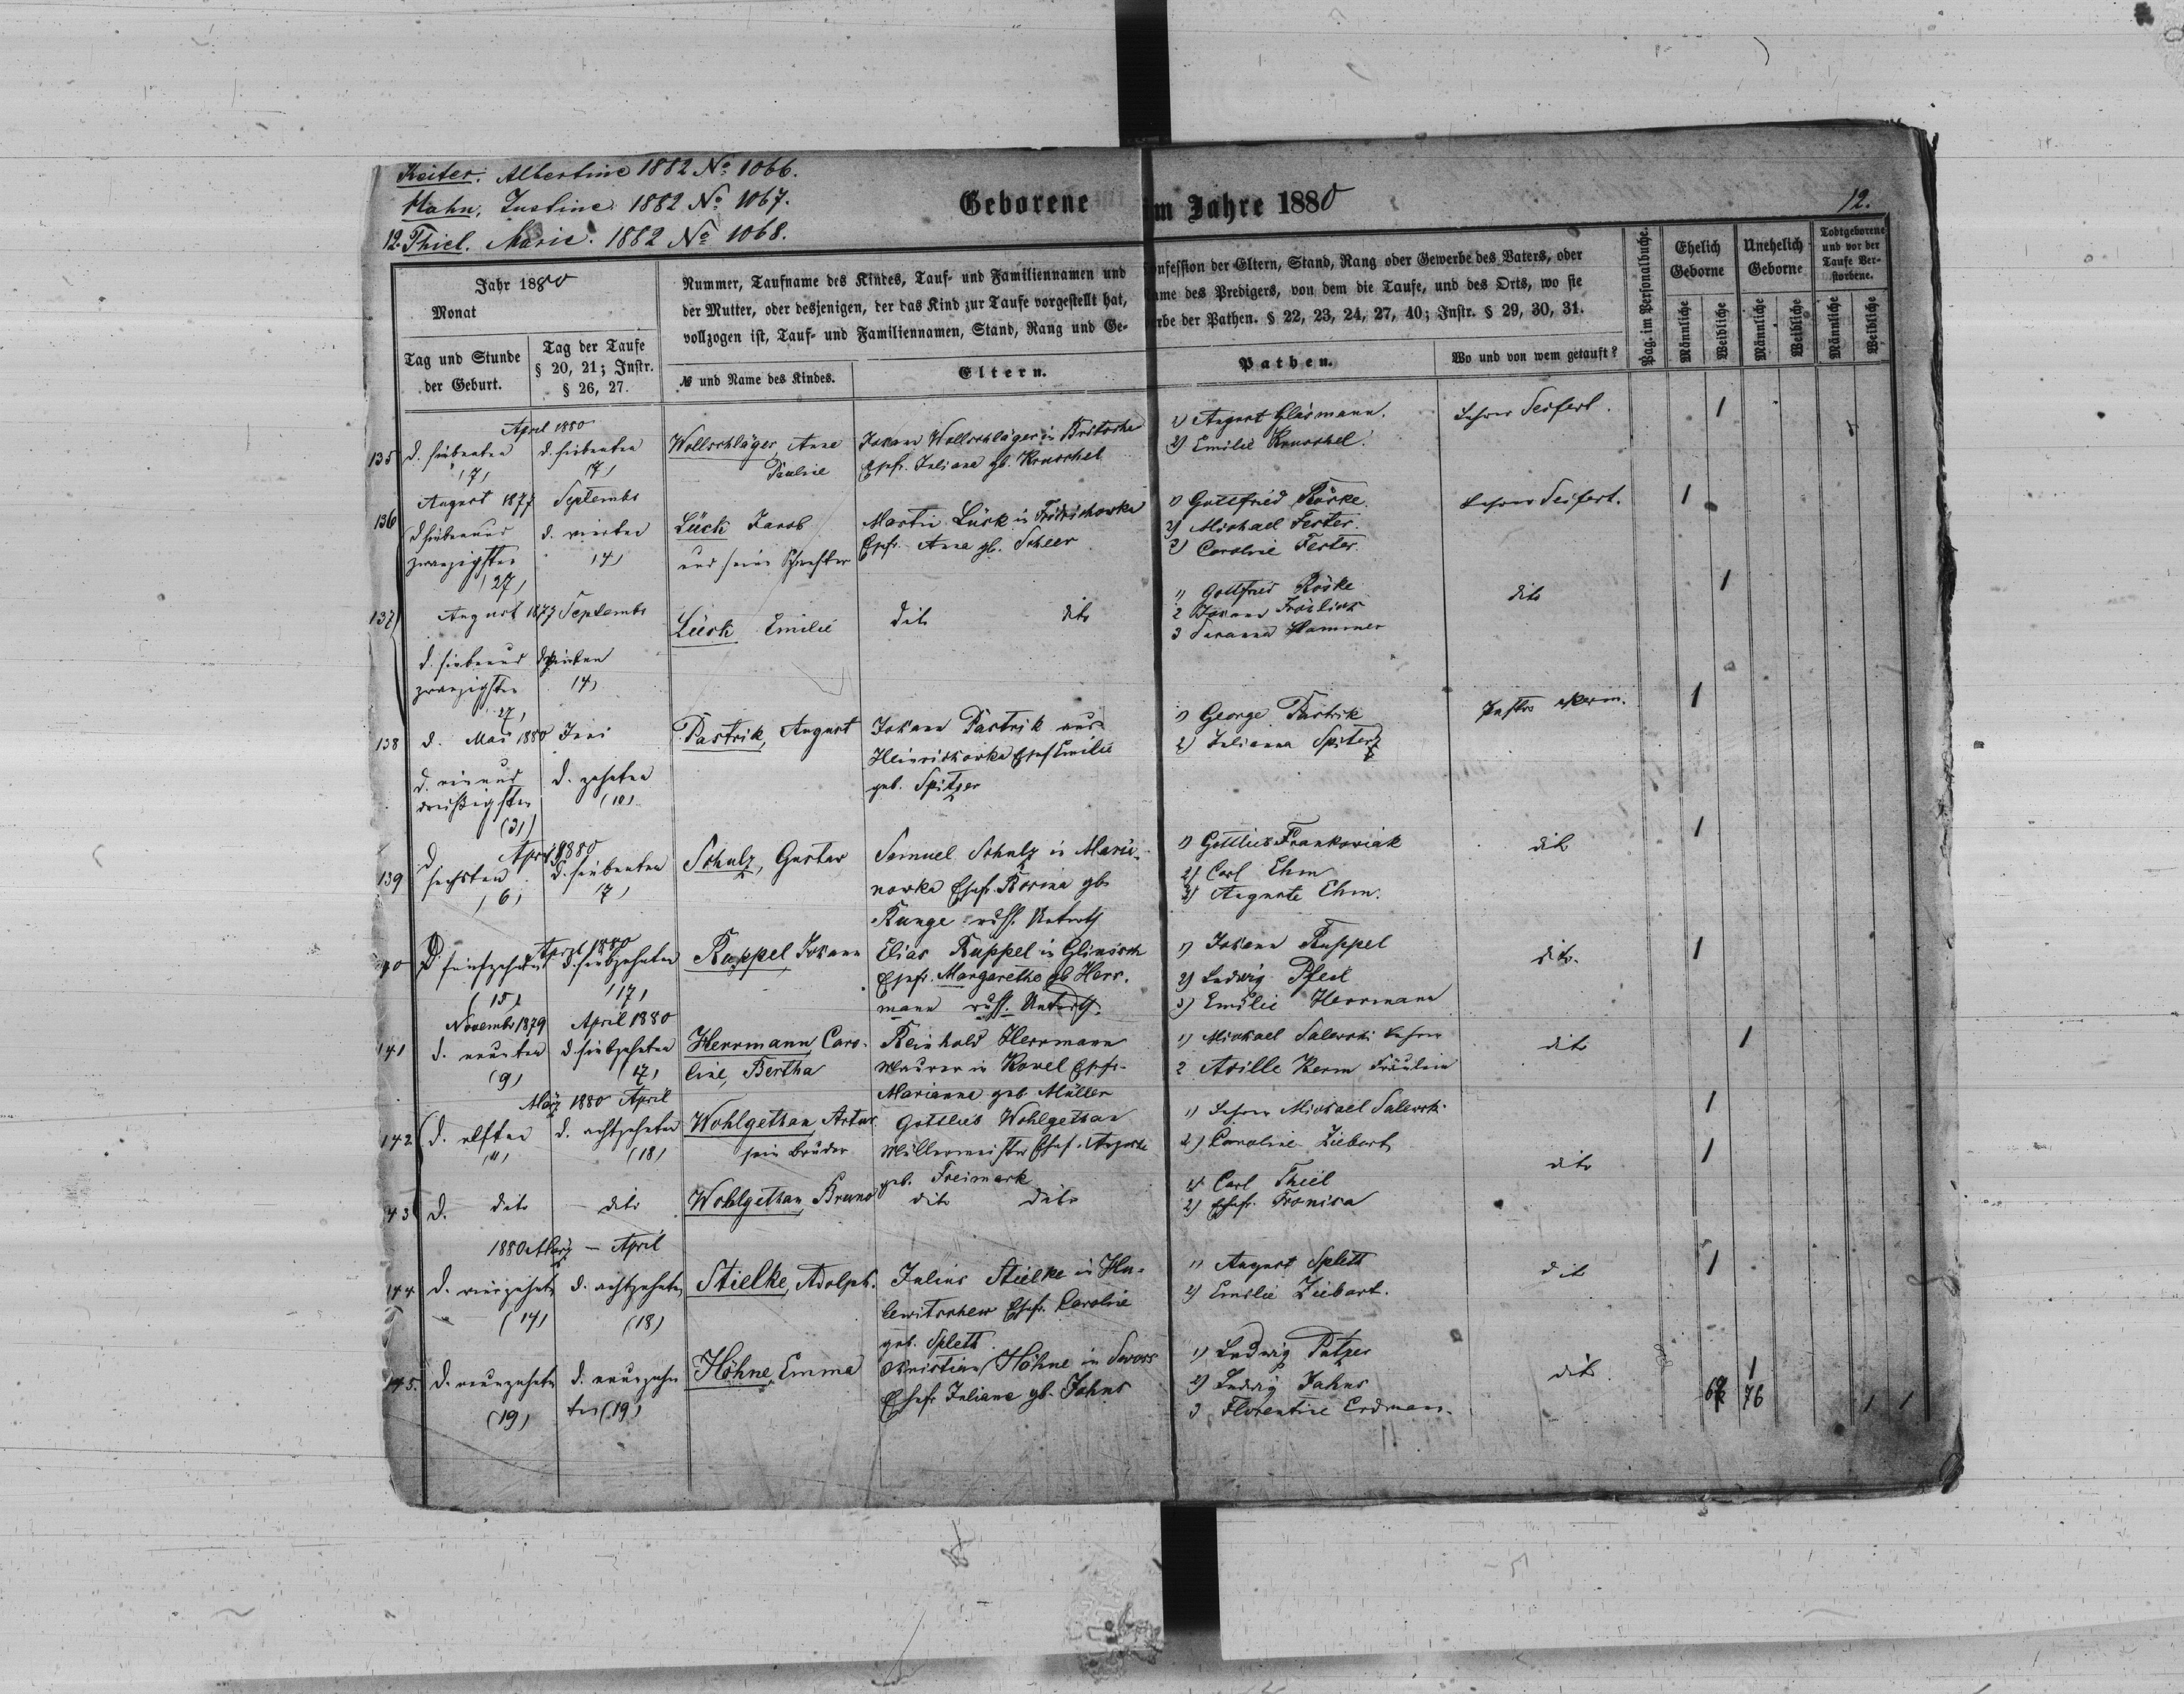 Reiter. Albertine 1882 No 1066.
Hahn, Justine 1882 No 1067.
12. Thiel. Marie. 1882 No 1068.
Geborene im Jahre 1880
12.
Jahr 1880
Monat
Tag und Stunde der Geburt.
Tag der Taufe § 20, 21; Instr. § 26, 27.
Nummer, Taufname des Kindes, Tauf- und Familiennamen und
der Mutter, oder desjenigen, der das Kind zur Taufe vorgestellt hat,
vollzogen ist, Tauf- und Familiennamen, Stand, Rang und Ge-
№ und Name des Kindes.
Eltern.
onfession der Eltern, Stand, Rang oder Gewerbe des Vaters, oder
ame des Predigers, von dem die Taufe, und des Orts, wo sie
erbe der Pathen. § 22, 23, 24, 27, 40; Instr. § 29, 30, 31.
Pathen.
Wo und von wem getauft?
Pag. im Personalbuche.
Ehelich Geborne
Unehelich Geborne
Todtgeborene und vor der Taufe Verstorbene.
Männliche
Weibliche
Männliche
Weibliche
Männliche
Weibliche
April 1880
135 d. siebenten d. siebenten Wollschläger, Anna Johann Wollschläger in 1) August Glesmann. Lehrer Seifert. 1
7) 7) Pauline Ehefr. Juliana gb. Kruschel 2) Emilie Kruschel.
August 1877 September
136 d. siebenund d. vierten Lück Jacob Martin Lück in Fridrichowka 1) Gottfried Röske Lehrer Seifert. 1
zwanzigsten 14) und seine Schwester Ehefr. Anna gb. Scheer 2) Michael Fester.
27) 3) Caroline Fester.
137) August 1877 September Lück Emilie dito dito 1) Gottfried Röske dito 1
2 Johann Frölich
d. siebenund d. vierten 3 Susanna Hammer
zwanzigsten 14)
27)
138 d. Mai 1880 Juni Pastrik, August Johann Pastrik aus 1) George Pastrik Pastor Kerm. 1
d. einund d. zehnten Heinrichowka Ehefr Emilie 2) Julianna Spitzer
dreißigsten (10) geb. Spitzer
(31)
d April 1880
139 sechsten d. siebenten Schulz, Gustav Samuel Schulz in Maria- 1) Gottlieb Frankowiak dito 1
6) 7) nowka Ehefr. Rosina gb. 2) Carl Ehm
Runge russ. Unterth 3) Auguste Ehm.
April 1880
40 d. fünfzehnt d. siebzehnten Ruppel Johann Elias Ruppel in Glinisch 1) Johann Ruppel dito. 1
(15) (17) Ehefr. Margaretha gb Herr- 2) Ludwig Pfeil
mann russ. Unterth. 3) Emilie Herrmann
November 1879 April 1880
141 d. neunten d. siebzehnten Herrmann Caro- Reinhold Herrmann 1) Michael Salewski Lehrer dito 1
(9) (17) line, Bertha Maurer in Kowel Ehefr. 2 Kerm Fräulein
Marianne geb Müller
März 1880 April
142 d. elften d. achtzehnten Wohlgethan Artur Gottlieb Wohlgethan 1) Lehrer Michael Salewski 1
(11) (18) sein Bruder Müllermeister Ehefr. Auguste 2) Caroline Ziebart
geb. Freimark
43 d. dito dito Wohlgethan Bruno dito dito 1) Carl Thiel dito 1
2) Ehefr. Fronisa
1880 März – April
144 d. vierzehnt d. achtzehnten Stielke, Adolph. Julius Stielke in Hu- 1) August Splett dito 1
(14) (18) lewitschew Ehefr. Caroline 2) Emilie Ziebart.
geb. Splett
145. d. neunzehnt d. neunzehn Höhne, Emma Christian Höhne in Swoss 1) Ludwig Patzer dito 1
(19) ten (19) Ehefr Juliana gb. Jahns 2) Ludwig Jahns
3 Florentine Erdmann.
76 1 1